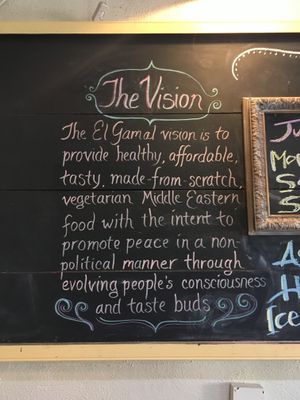 The Vision
The El Gamal vision is to
provide healthy, affordable,
tasty, made-from-scratch,
vegetarian Middle Eastern
food with the intent to
promote peace in a non-
political manner through
evolving people's consciousness
and taste buds